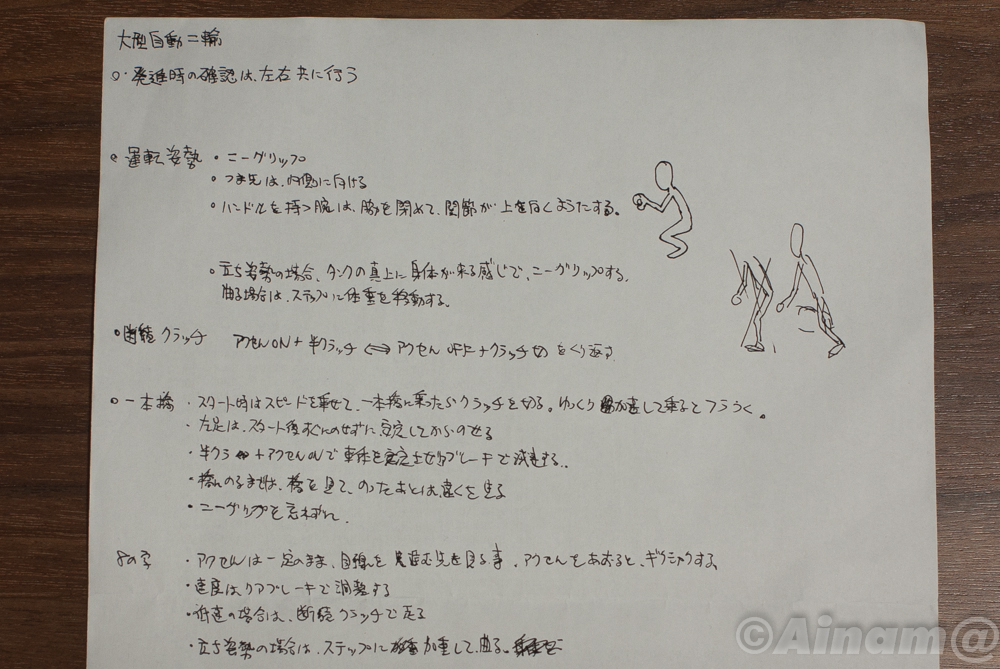 大型自動二輪
○・発進時の確認は、左右共に行う
・運転姿勢 ・ニーグリップ
・つま先は、内側に向ける
・ハンドルを持つ腕は、脇を閉めて、関節が上を向くようにする。
・立ち姿勢の場合、タンクの真上に身体が来る感じで、ニーグリップする。
曲る場合は、ステップに体重を移動する。
・断続クラッチ アクセルON+半クラッチ ⇔ アクセルOFF+クラッチ切 をくり返す
○一本橋 ・スタート時はスピードを乗せて、一本橋に乗ったらクラッチを切る。ゆっくり加速して乗るとフラつく。
・左足は、スタート後すぐにのせずに安定してからのせる
・半クラ+アクセルONで車体を安定させ ブレーキで減速する。
・橋にのるまでは、橋を見て、のったあとは、遠くを見る
・ニーグリップを忘れずに。
8の字 ・アクセルは一定のまま、目線を進む先を見る事、アクセルをあおると、ギクシャクする
・速度はリアブレーキで調整する
・低速の場合は、断続クラッチで走る
・立ち姿勢の場合は、ステップに加重して曲る。
©Ainam@